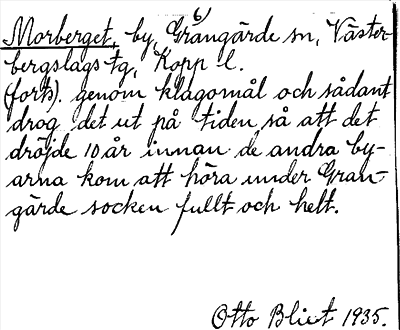 6)
Morberget, by, Grangärde sn, Väster-
bergslags tg, Kopp l.
(forts). genom klagomål och sådant
drog det ut på tiden, så att det
dröjde 10 år innan de andra by-
arna kom att höra under Gran-
gärde socken fullt och helt.
Otto Blixt 1935.